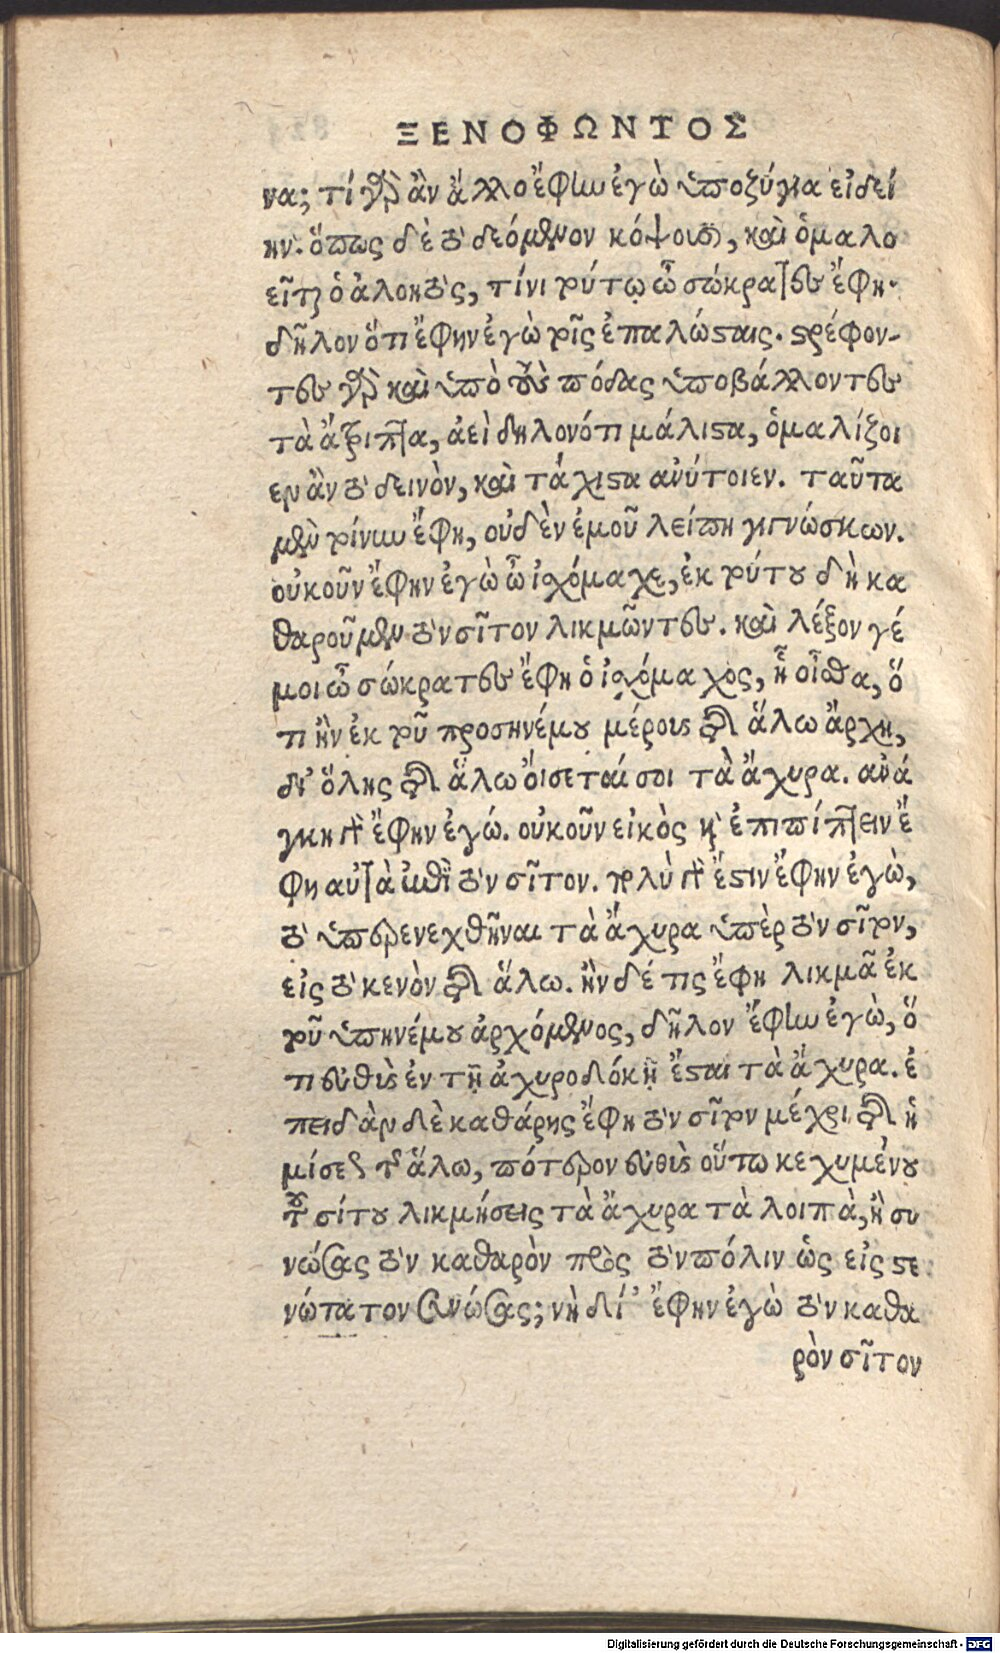 ΞΕΝΟΦΩΝΤΟΣ
να; τί γὰρ ἂν ἄλλο ἔφην ἐγὼ ὑποζύγια εἰδεί
ην. ὅπως δὲ τὸ δεόμενον κόψουσι, καὶ ὁμαλο
εῖται ὁ ἀλοητὸς, τίνι τούτῳ ὦ σώκρατες ἔφη.
δῆλον ὅτι ἔφην ἐγὼ τοῖς ἐπαλώσταις. στρέφον-
τες γὰρ καὶ ὑπὸ τοὺς πόδας ὑποβάλλοντες
τὰ ἄτριπτα, ἀεὶ δηλονότι μάλιστα, ὁμαλίζοι
εν ἂν τὸ δεινὸν, καὶ τάχιστα ἀνύτοιεν. ταῦτα
μὲν τοίνυν ἔφη, οὐδὲν ἐμοῦ λείπῃ γιγνώσκων.
οὐκοῦν ἔφην ἐγὼ ὦ ἰσχόμαχε, ἐκ τούτου δὴ κα
θαροῦμεν τὸν σῖτον λικμῶντες. καὶ λέξον γέ
μοι ὦ σώκρατες ἔφη ὁ ἰσχόμαχος, ἦ οἶσθα, ὅ
τι ἢν ἐκ τοῦ προσηνέμου μέρους τῆς ἅλω ἄρχῃ,
δι' ὅλης τῆς ἅλω οἴσεταί σοι τὰ ἄχυρα. ἀνά
γκη γὰρ ἔφην ἐγώ. οὐκοῦν εἰκὸς καὶ ἐπιπίπτειν ἔ
φη αὐτὰ ἐπὶ τὸν σῖτον. πολὺ γὰρ ἔστιν ἔφην ἐγὼ,
τὸ ὑπερενεχθῆναι τὰ ἄχυρα ὑπὲρ τὸν σῖτον,
εἰς τὸ κενὸν τῆς ἅλω. ἢν δέ τις ἔφη λικμᾶ ἐκ
τοῦ ὑπηνέμου ἀρχόμενος, δῆλον ἔφην ἐγὼ, ὅ
τι εὐθὺς ἐν τῇ ἀχυροδόκῃ ἔσται τὰ ἄχυρα. ἐ
πειδὰν δὲ καθάρῃς ἔφη τὸν σῖτον μέχρι τῆς ἡ
μίσεως τῆς ἅλω, πότερον εὐθὺς οὕτω κεχυμένου
τοῦ σίτου λικμήσεις τὰ ἄχυρα τὰ λοιπὰ, ἢ συ
νώσας τὸν καθαρὸν πρὸς τὸν πόλιν ὡς εἰς στε
νώτατον συνώσας; νὴ δί' ἔφην ἐγὼ τὸν καθα
ρὸν σῖτον
Digitalisierung gefördert durch die Deutsche Forschungsgemeinschaft - DFG